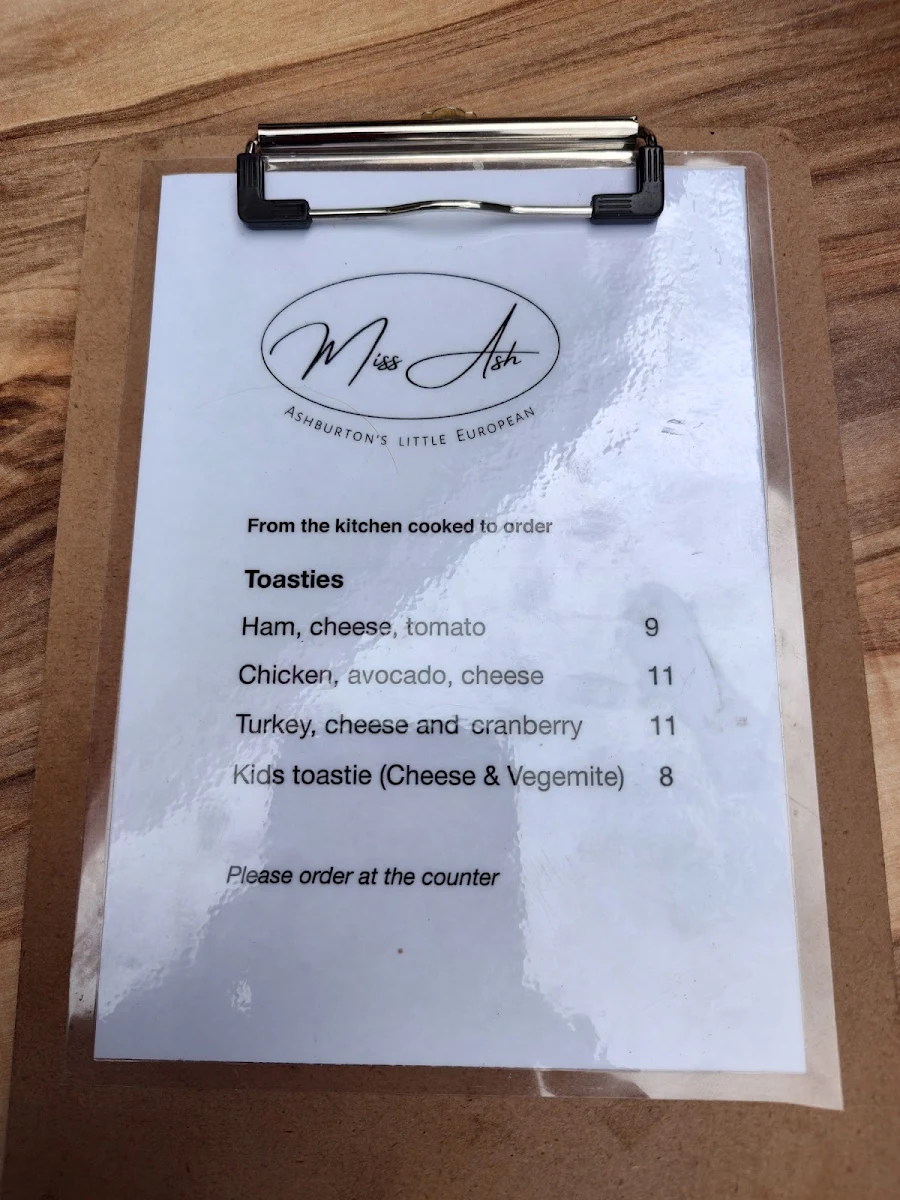 Miss Ash
ASHBURTON'S LITTLE EUROPEAN
From the kitchen cooked to order
Toasties
Ham, cheese, tomato 9
Chicken, avocado, cheese 11
Turkey, cheese and cranberry 11
Kids toastie (Cheese & Vegemite) 8
Please order at the counter